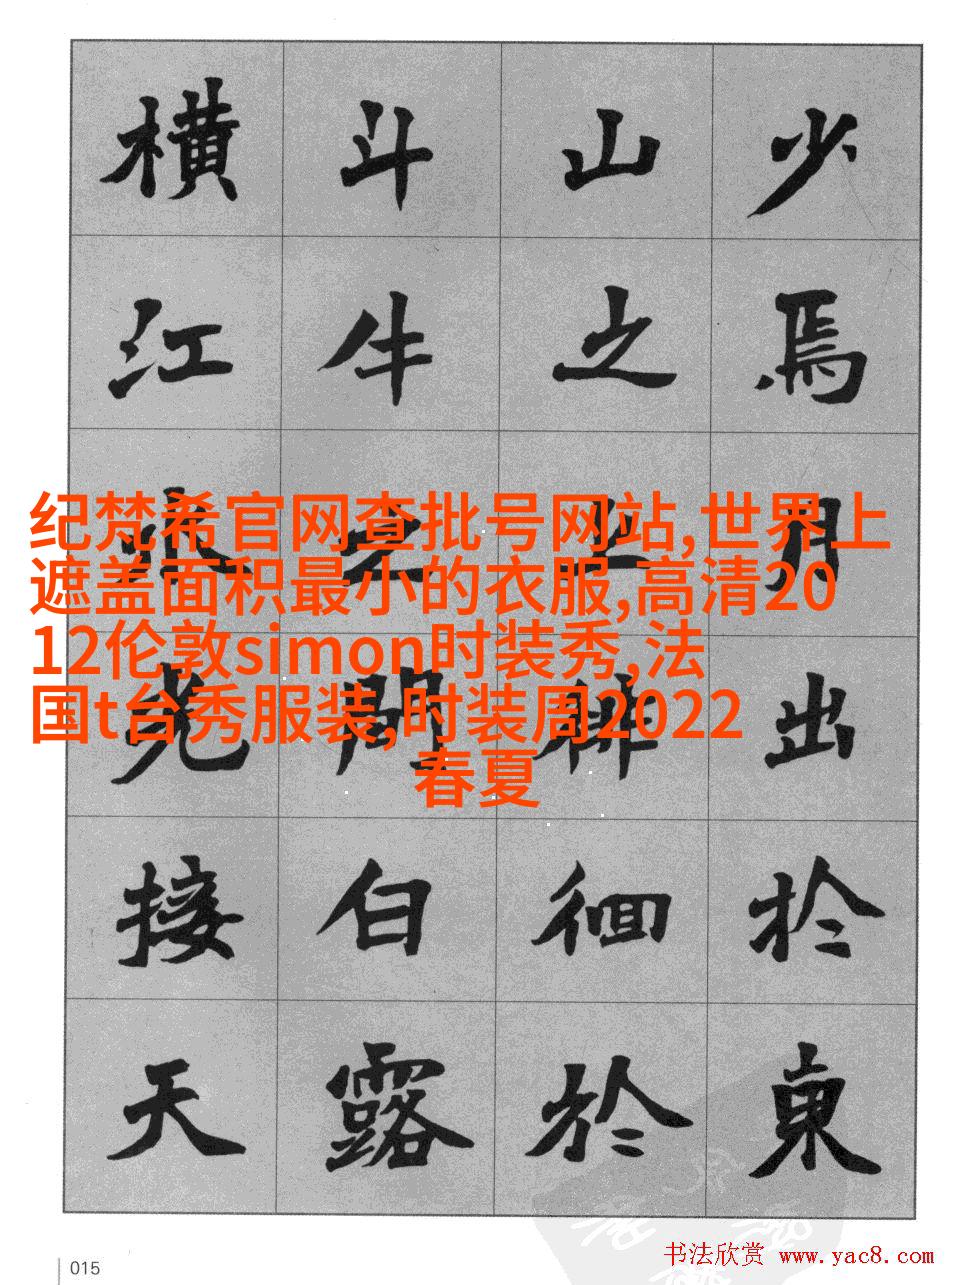 少焉月出於東
山之上徘徊於
斗牛之間白露
橫江水光接天
纪梵希官网查批号网站,世界上
遮盖面积最小的衣服,高清20
12伦敦simon时装秀,法
国t台秀服装,时装周2022
春夏
015
书法欣赏 www.yac8.com